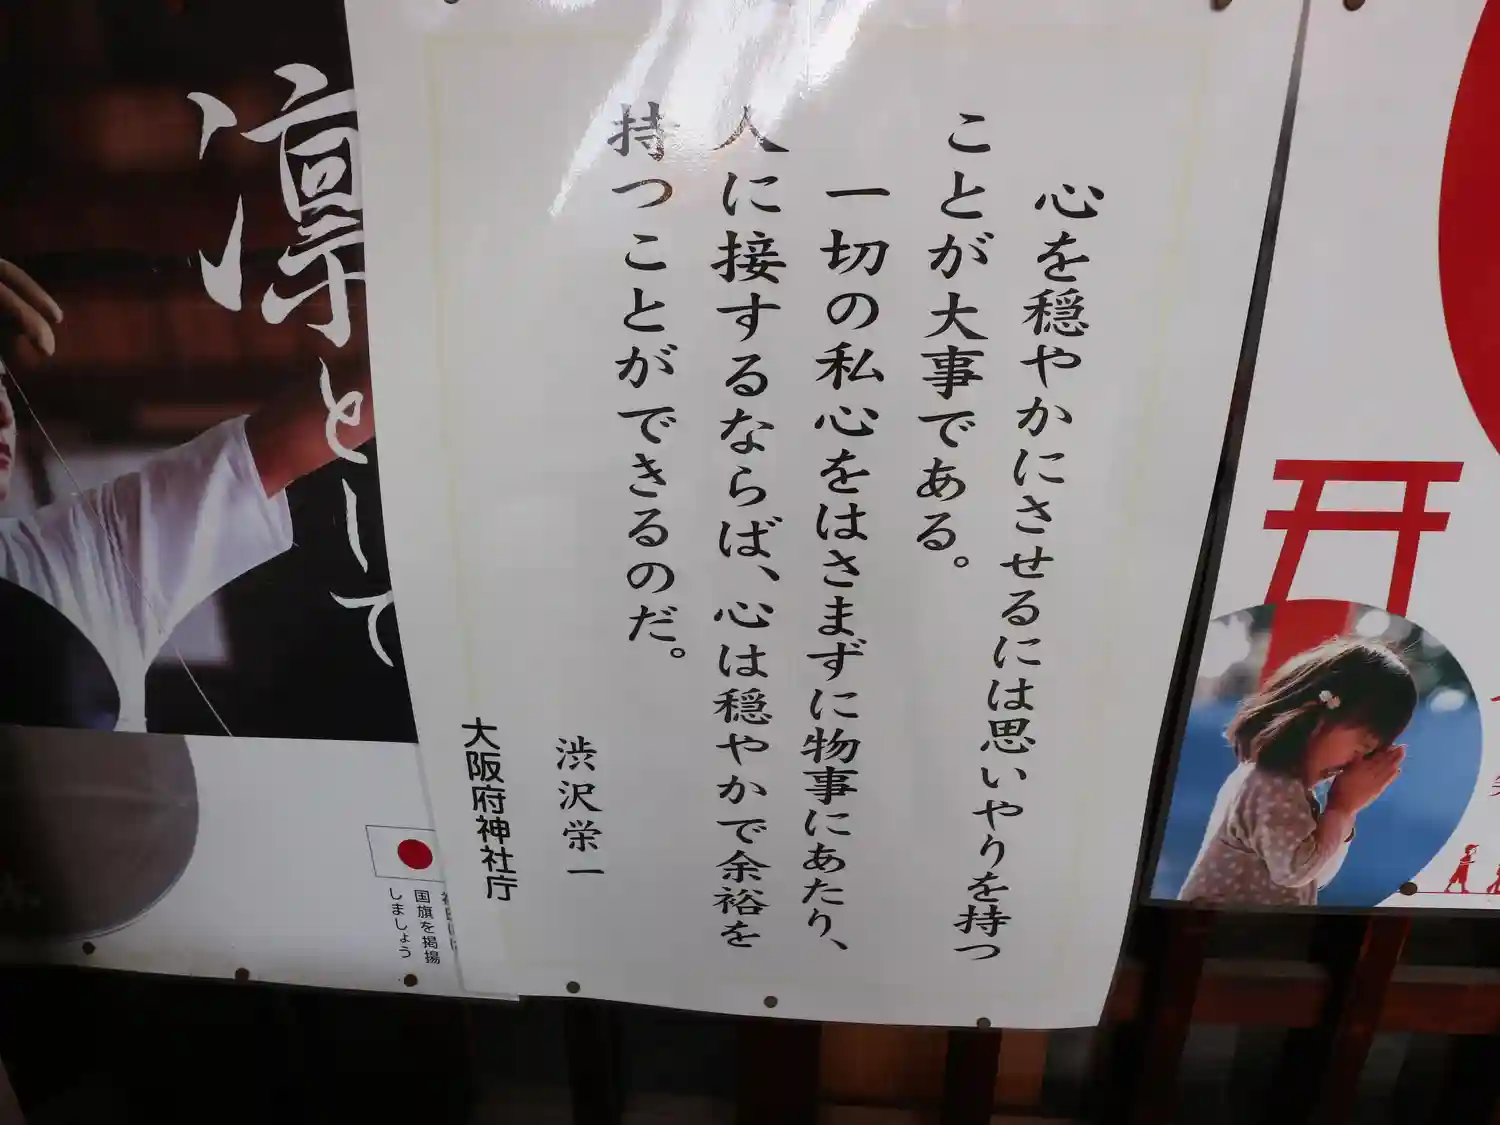 心を穏やかにさせるには思いやりを持つ
ことが大事である。
一切の私心をはさまずに物事にあたり、
人に接するならば、心は穏やかで余裕を
持つことができるのだ。
渋沢栄一
大阪府神社庁
凛として
国旗を掲揚
しましょう